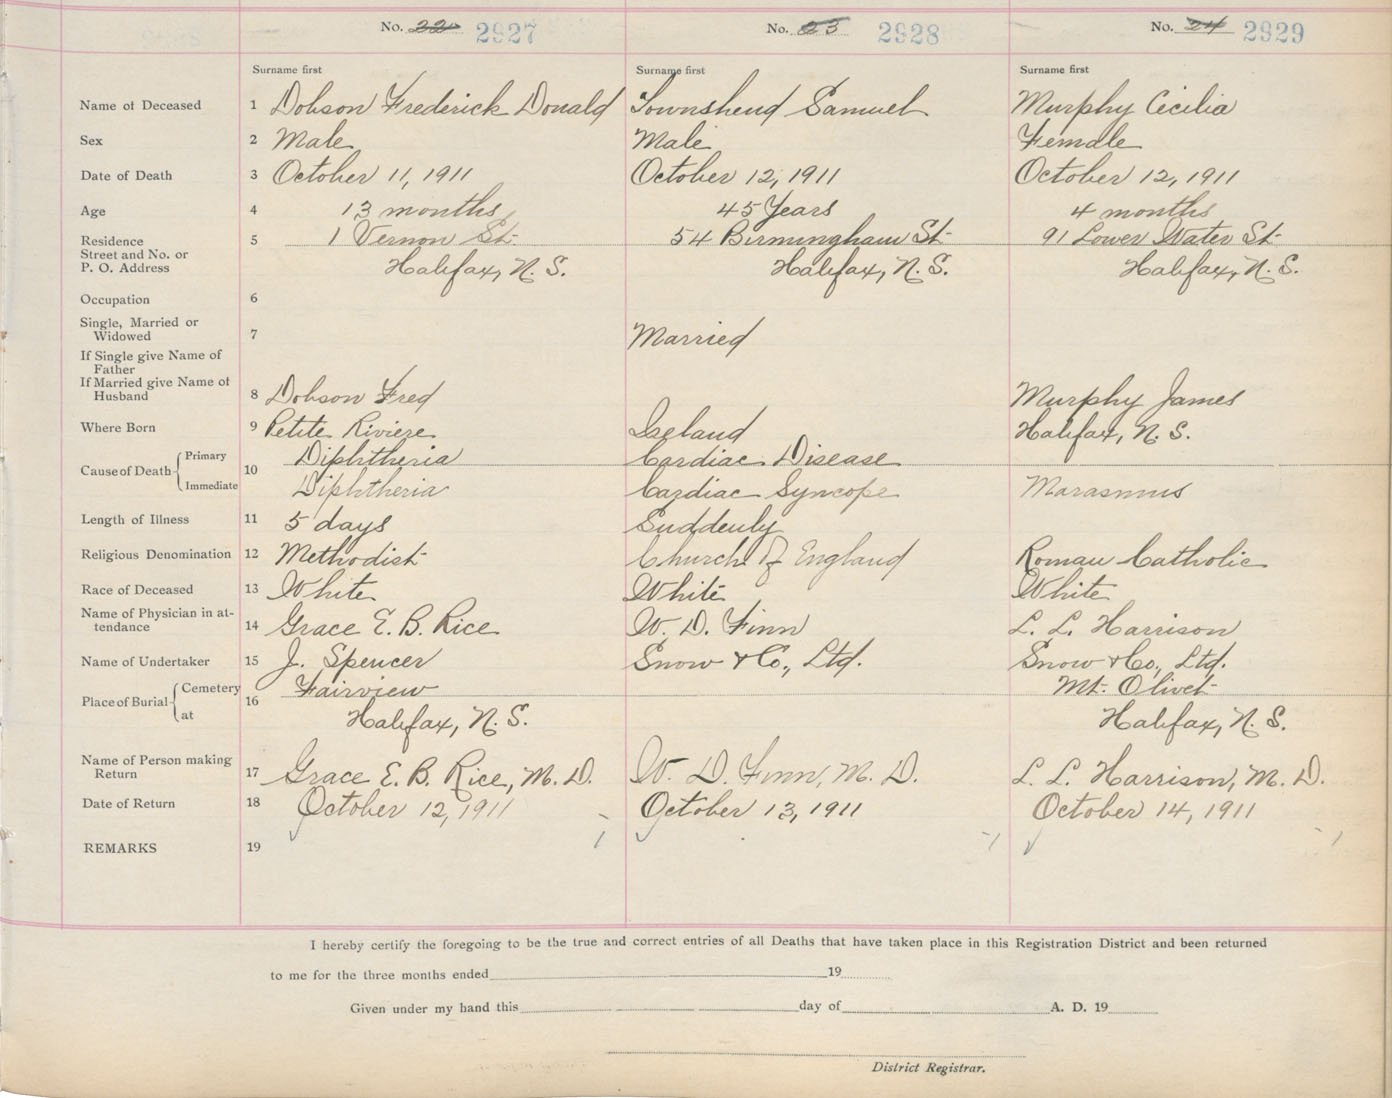 No. 22 2927 No. 23 2928 No. 24 2929
Surname first Surname first Surname first
Name of Deceased 1 Dobson Frederick Donald Townshend Samuel Murphy Cecilia
Sex 2 Male Male Female
Date of Death 3 October 11, 1911 October 12, 1911 October 12, 1911
Age 4 13 months 45 Years 4 months
Residence 5 1 Vernon St. 54 Birmingham St. 91 Lower Water St.
Street and No. or
P. O. Address Halifax, N. S. Halifax, N. S. Halifax, N. S.
Occupation 6
Single, Married or
Widowed 7 Married
If Single give Name of
Father
If Married give Name of
Husband 8 Dobson Fred Murphy James
Where Born 9 Petite Riviere Ireland Halifax, N. S.
Cause of Death Primary 10 Diphtheria Cardiac Disease
Immediate Diphtheria Cardiac Syncope Marasmus
Length of Illness 11 5 days Suddenly
Religious Denomination 12 Methodist Church of England Roman Catholic
Race of Deceased 13 White White White
Name of Physician in at-
tendance 14 Grace E. B. Rice W. D. Finn L. L. Harrison
Name of Undertaker 15 J. Spencer Snow & Co., Ltd. Snow & Co., Ltd.
Place of Burial Cemetery 16 Fairview Mt. Olivet
at Halifax, N. S. Halifax, N. S.
Name of Person making
Return 17 Grace E. B. Rice, M. D. W. D. Finn, M. D. L. L. Harrison, M. D.
Date of Return 18 October 12, 1911 October 13, 1911 October 14, 1911
REMARKS 19
I hereby certify the foregoing to be the true and correct entries of all Deaths that have taken place in this Registration District and been returned
to me for the three months ended 19
Given under my hand this day of A. D. 19
District Registrar.